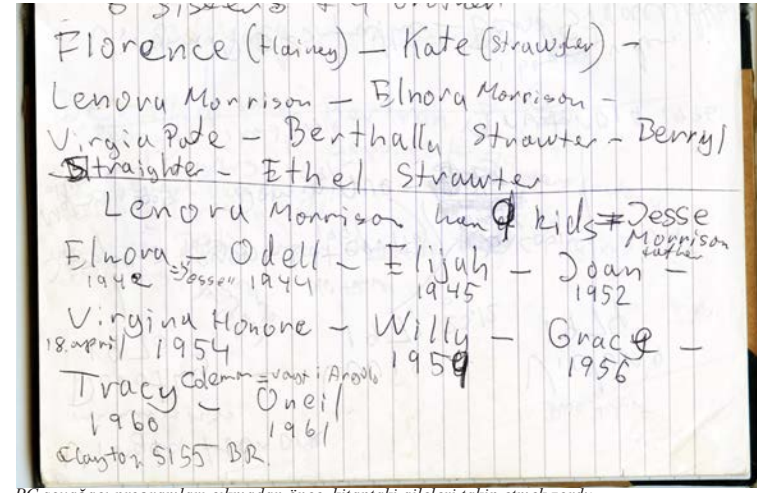 6 Sisters + 4
Florence (Hainey) — Kate (Strawter) —
Lenora Morrison — Elnora Morrison —
Virgia Pate — Berthalla Strawter — Berryl
Straighter — Ethel Strawter
Lenora Morrison han 9 kids = Jesse
Morrison
father
Elnora — Odell — Elijah — Joan —
1942 = "Jesse" 1944 1945 1952
Virgina Honore — Willy — Grace —
18. april 1954 1959 1956
Tracy Colemn = vært i
1960 — Oneil
1961
Clayton 5155 BR.